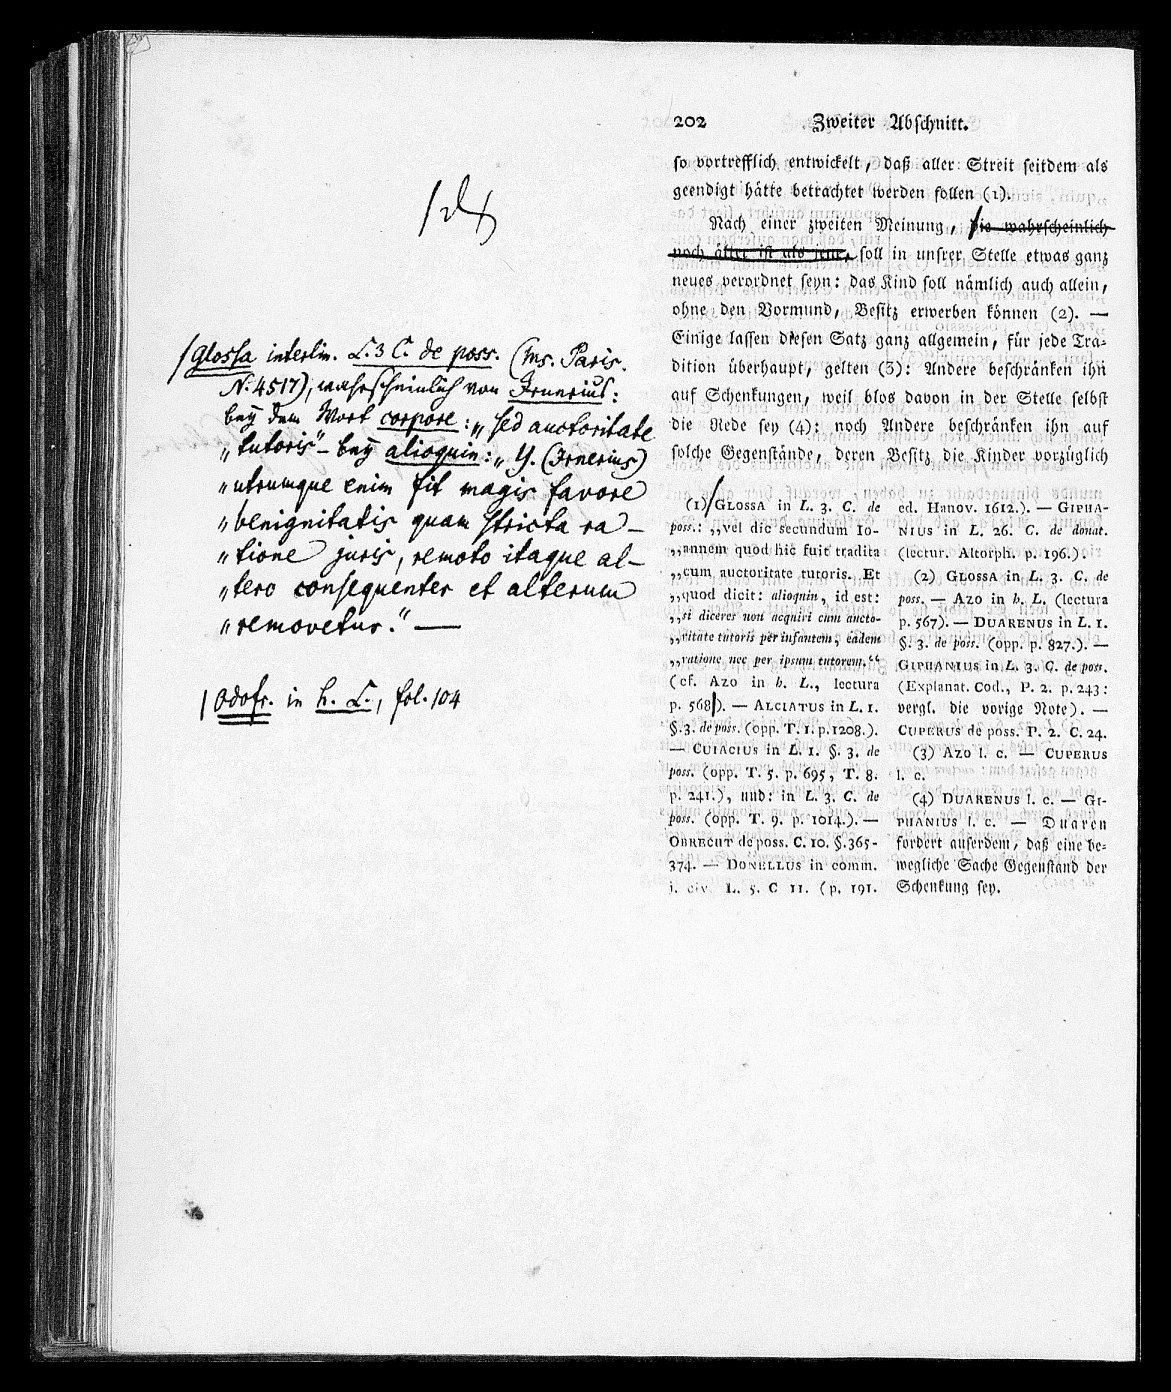 202 Zweiter Abschnitt.
so vortrefflich entwickelt, daß aller Streit seitdem als
geendigt hätte betrachtet werden sollen (1).
Nach einer zweiten Meinung, die wahrscheinlich
noch älter ist als jene, soll in unsrer Stelle etwas ganz
neues verordnet seyn: das Kind soll nämlich auch allein,
ohne den Vormund, Besitz erwerben können (2). —
Einige lassen diesen Satz ganz allgemein, für jede Tra-
dition überhaupt, gelten (3): Andere beschränken ihn
auf Schenkungen, weil blos davon in der Stelle selbst
die Rede sey (4): noch Andere beschränken ihn auf
solche Gegenstände, deren Besitz die Kinder vorzüglich
(1) GLOSSA in L. 3. C. de
poss.: „vel dic secundum Io-
„annem quod hic fuit tradita
„cum auctoritate tutoris. Et
„quod dicit: alioquin, id est:
„si diceres non acquiri cum aucto-
„ritate tutoris per infantem, eadem
„ratione nec per ipsum tutorem.“
(cf. AZO in h. L., lectura
p. 568). — ALCIATUS in L. 1.
§. 3. de poss. (opp. T. 1. p. 1208.).
— CUIACIUS in L. 1. §. 3. de
poss. (opp. T. 5. p. 695, T. 8.
p. 241.), und: in L. 3. C. de
poss. (opp. T. 9. p. 1014.). —
OBRECHT de poss. C. 10. §. 365-
374. — DONELLUS in comm.
i. civ. L. 5. C 11. (p. 191.
ed. Hanov. 1612.). — GIPHA-
NIUS in L. 26. C. de donat.
(lectur. Altorph. p. 196.).
(2) GLOSSA in L. 3. C. de
poss. — AZO in h. L. (lectura
p. 567). — DUARENUS in L. 1.
§. 3. de poss. (opp. p. 827.). —
GIPHANIUS in L. 3. C. de poss.
(Explanat. Cod., P. 2. p. 243:
vergl. die vorige Note). —
CUPERUS de poss. P. 2. C. 24.
(3) AZO l. c. — CUPERUS
l. c.
(4) DUARENUS l. c. — GI-
PHANIUS l. c. — Duaren
fordert auserdem, daß eine be-
wegliche Sache Gegenstand der
Schenkung sey.
Glossa interlin. L. 3 C. de poss. (ms. Paris.
N. 4517), wahrscheinlich von Irnerius:
bey dem Wort corpore: „sed auctoritate
„tutoris“ – bey alioquin: „y. (Irnerius)
„utrumque enim fit magis favore
„benignitatis quam stricta ra–
„tione juris, remoto itaque al–
„tero consequenter et alterum
„removetur.“ —
Odofr. in h. L., fol. 104